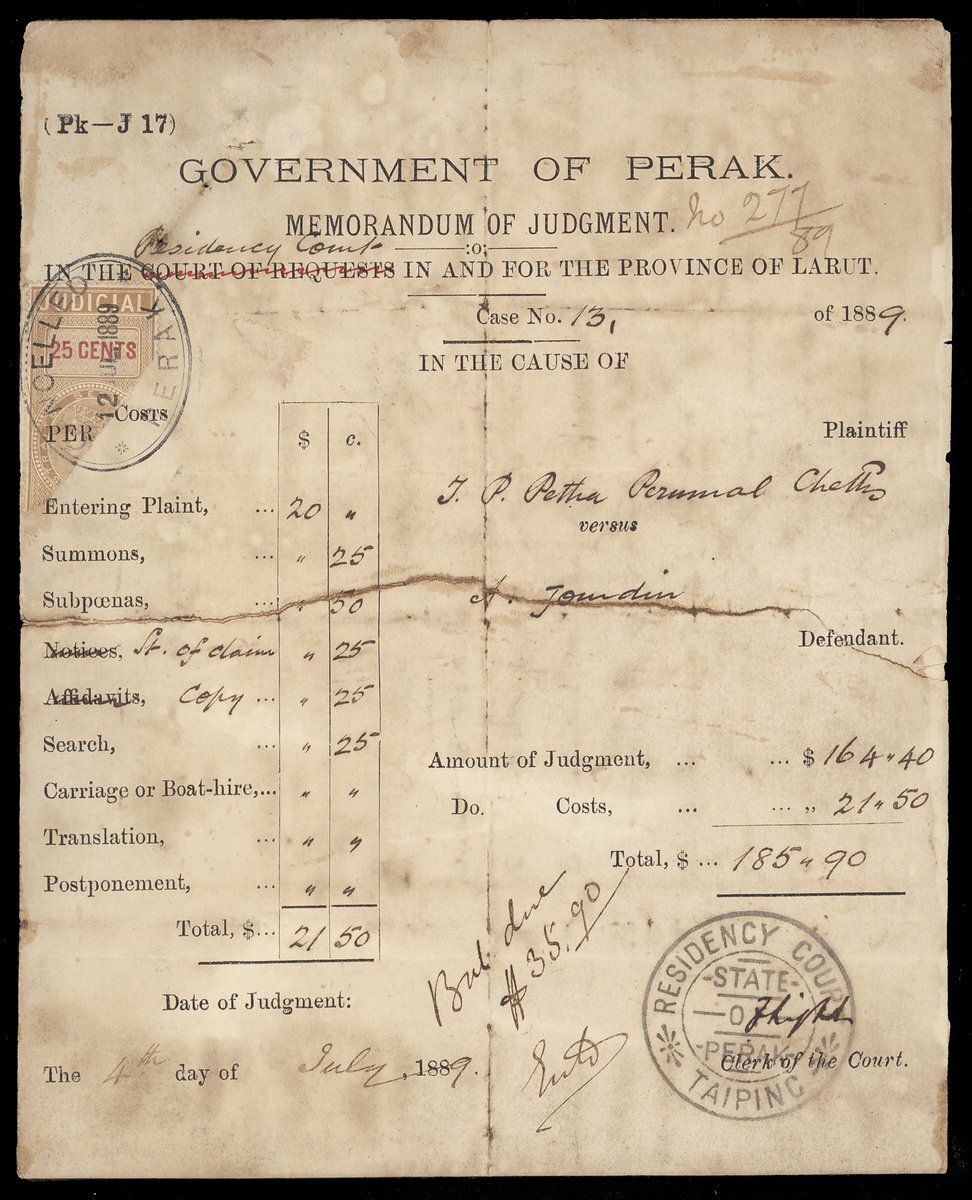 (Pk—J 17)
GOVERNMENT OF PERAK.
MEMORANDUM OF JUDGMENT. No 277/89
:o:
Residency Court
IN THE COURT OF REQUESTS IN AND FOR THE PROVINCE OF LARUT.
JUDICIAL
25 CENTS
CANCELLED
12 JUL 1889
PERAK
Case No. 13, of 1889.
IN THE CAUSE OF
PER Costs
$ c.
Plaintiff
T. P. Petha Perumal Chetty
versus
A. Jourdin
Defendant.
Entering Plaint, ... 20 "
Summons, ... " 25
Subpœnas, ... " 50
Notices, St. of claim " 25
Affidavits, Copy ... " 25
Search, ... " 25
Carriage or Boat-hire,... " "
Translation, ... " "
Postponement, ... " "
Total, $... 21 50
Amount of Judgment, ... ... $ 164 " 40
Do. Costs, ... ... „ 21 " 50
Total, $ ... 185 " 90
Bal. due
$35.90
Date of Judgment:
The 4th day of July, 1889.
RESIDENCY COURT
STATE
OF
PERAK
TAIPING
Clerk of the Court.